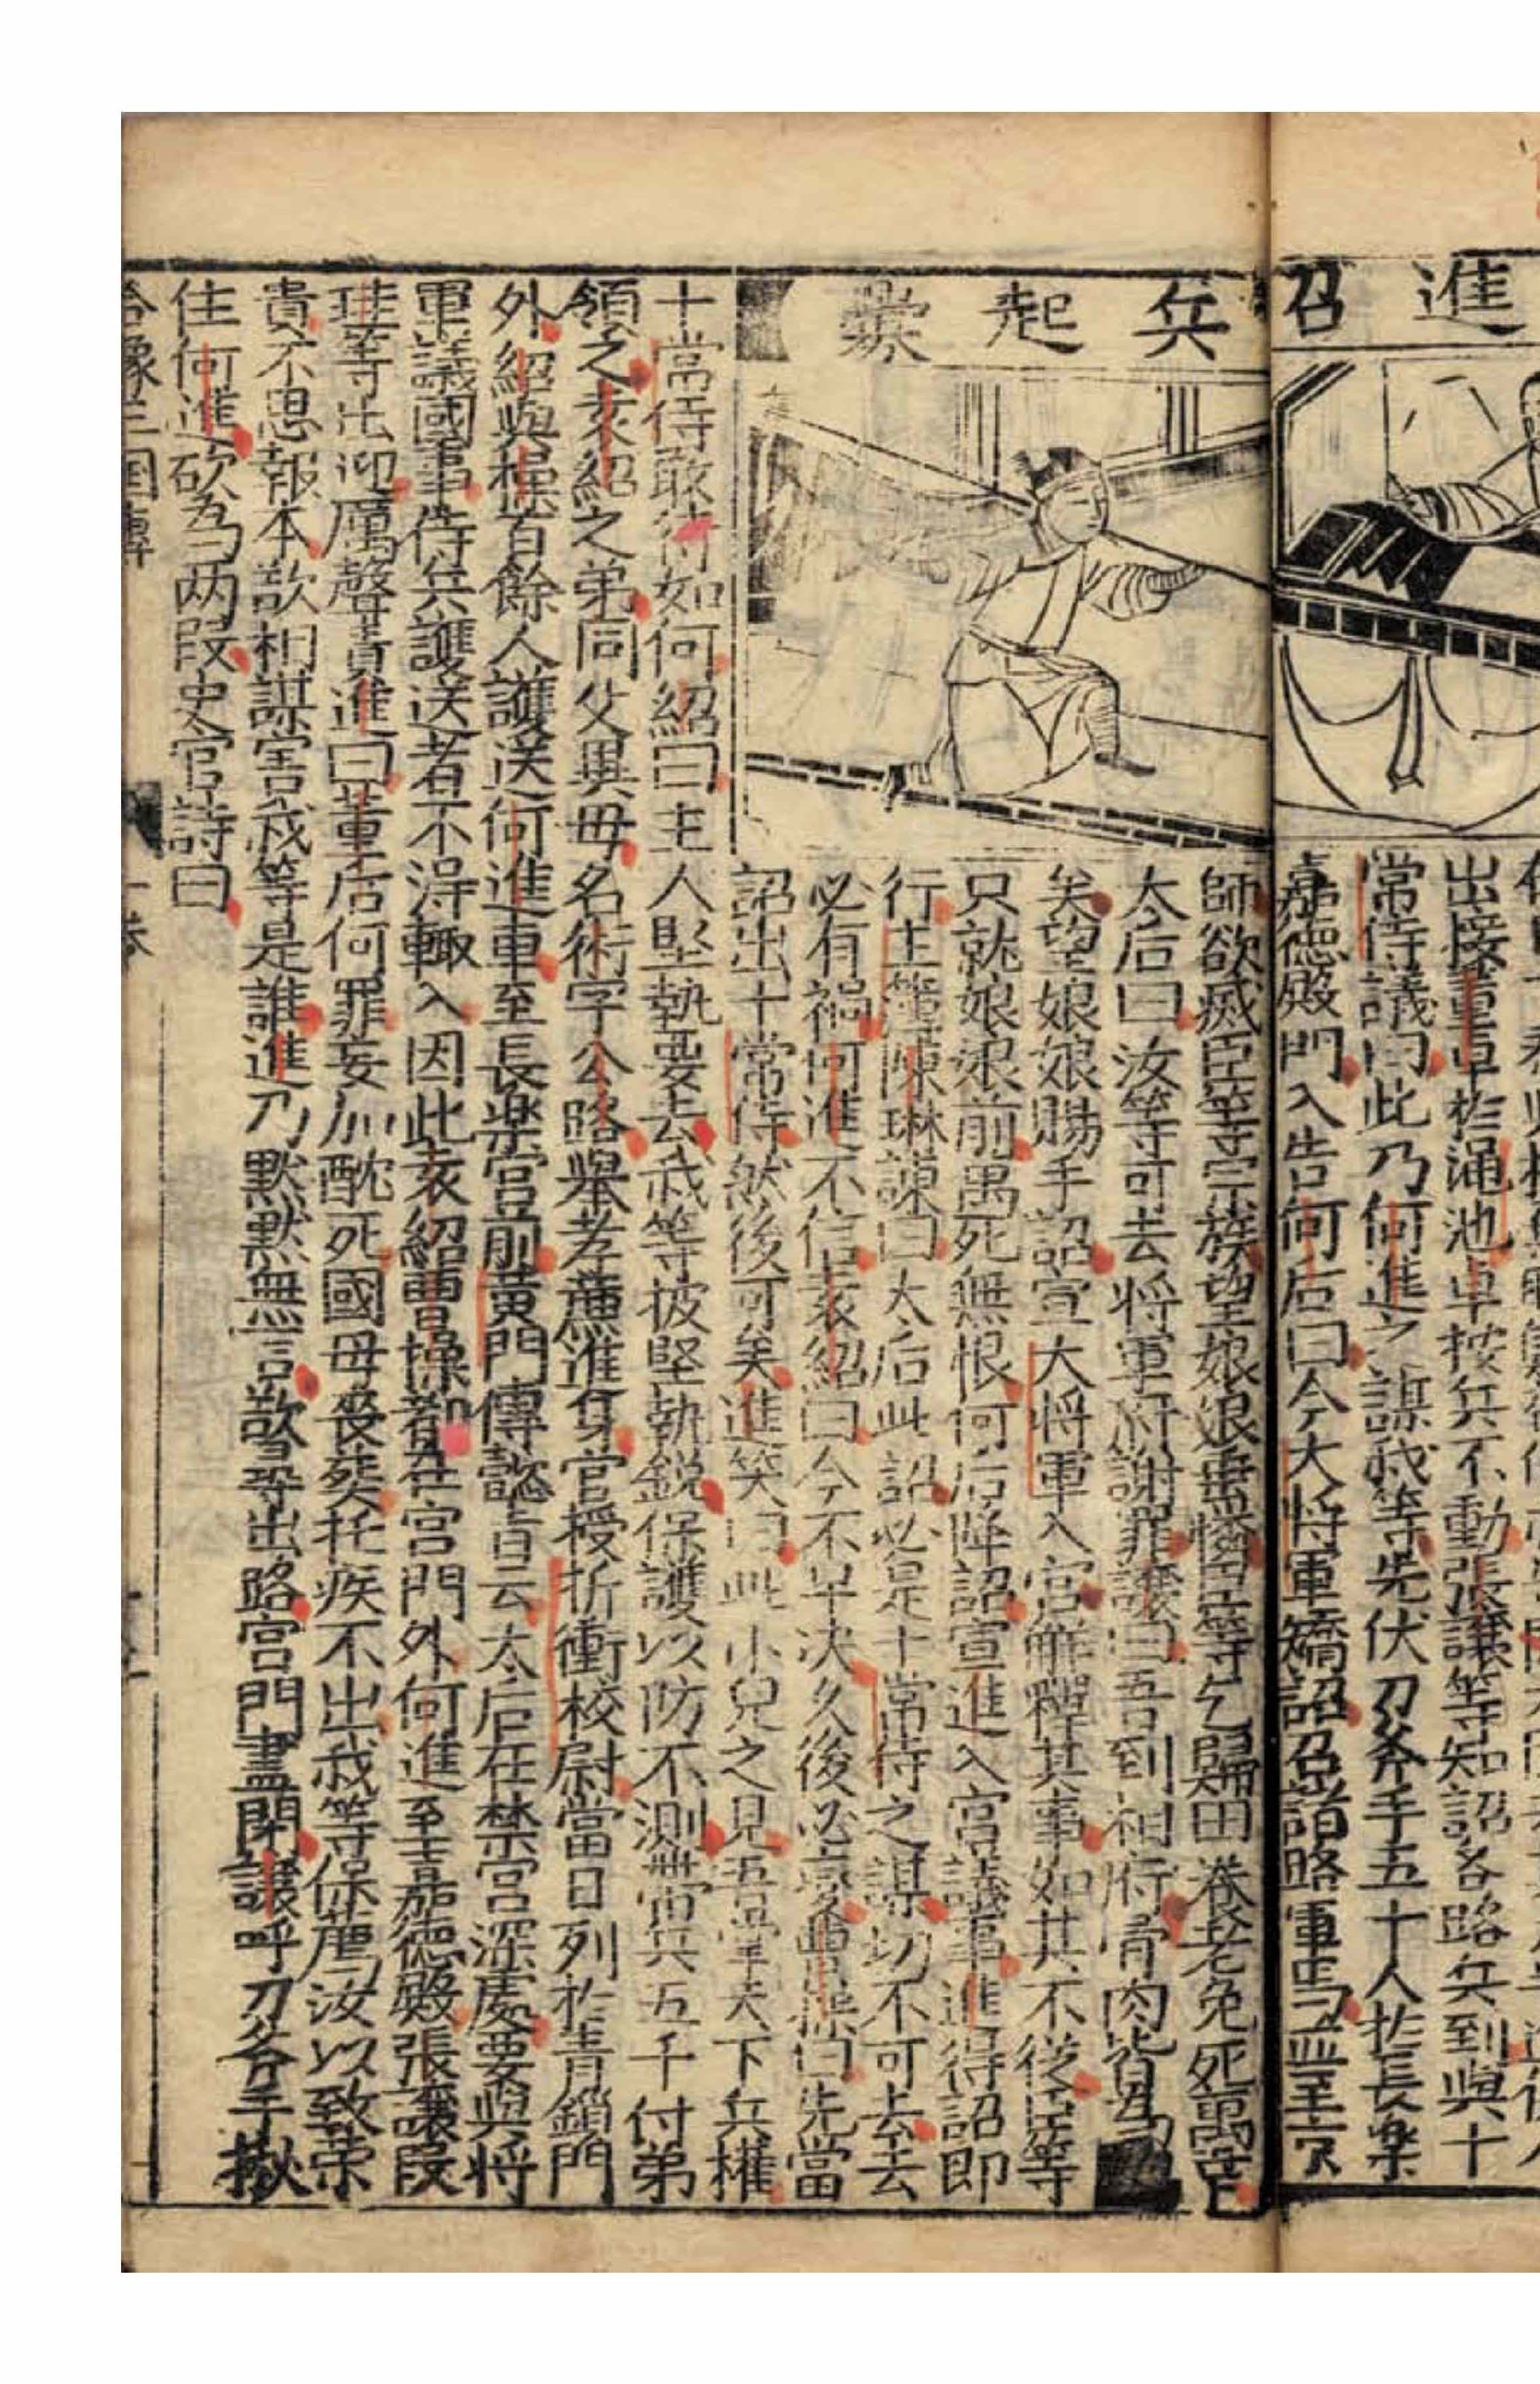 進召
出接董卓於澠池卓按兵不動張讓等知詔各路兵到與十
常侍議曰此乃何進之謀我等先伏刀斧手五十人於長樂
嘉德殿門入告何后曰今大将軍矯詔召諸路軍馬並至京
兵起
師欲滅臣等宗族望娘娘垂憐臣等乞歸田養老免死
太后曰汝等可去将軍府謝罪讓曰吾到相府骨肉皆為
矣望娘娘賜手詔宣大将軍入宫解釋其事如其不從臣等
只就娘娘前萬死無恨何后降詔宣進入宫議事進得詔即
行主簿陳琳諫曰太后此詔必是十常侍之謀切不可去去
必有禍何進不信袁紹曰今不早決久後必變曹操曰先當
詔出十常侍然後可矣進笑曰此小兒之見吾掌天下兵權
十常侍敢待如何紹曰主人堅執要去我等披堅執鋭保護以防不測無當兵五千付弟
領之袁紹之弟同父異母名術字公路舉孝廉進身官授折衝校尉當日列於青鎖門
外紹與操百餘人護送何進車至長樂宫前黄門傳懿旨云太后在禁宫深處要與将
軍議國事侍兵護送者不得輙入因此袁紹曹操都在宫門外何進至嘉德殿張讓段
珪等出迎厲聲責進曰董后何罪妄以酖死國母丧葬托疾不出我等保薦汝以致荣
貴不思報本欲相謀害我等是誰進乃默默無言欲尋出路宫門盡閉讓呼刀斧手揪
住何進砍為两段史官詩曰
合像三国傳 一卷